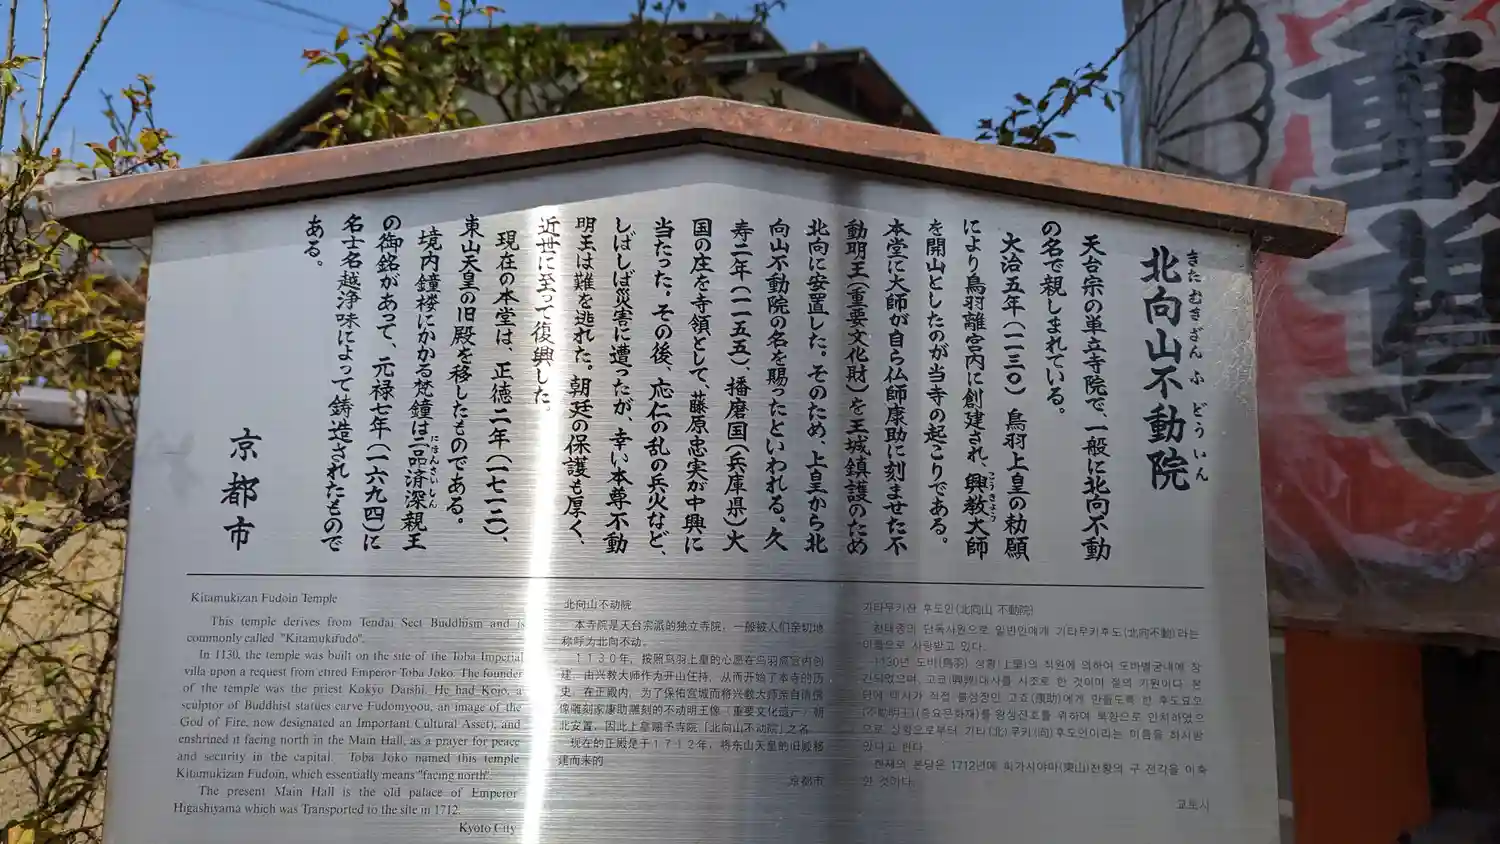 北向山不動院
きた むき ざん ふ どう いん
天台宗の単立寺院で、一般に北向不動
の名で親しまれている。
大治五年(一一三〇)鳥羽上皇の勅願
により鳥羽離宮内に創建され、興教大師
こうきょう
を開山としたのが当寺の起こりである。
本堂に大師が自ら仏師康助に刻ませた不
動明王(重要文化財)を王城鎮護のため
北向に安置した。そのため、上皇から北
向山不動院の名を賜ったといわれる。久
寿二年(一一五五)、播磨国(兵庫県)大
国の庄を寺領として、藤原忠実が中興に
当たった。その後、応仁の乱の兵火など、
しばしば災害に遭ったが、幸い本尊不動
明王は難を逃れた。朝廷の保護も厚く、
近世に至って復興した。
現在の本堂は、正徳二年(一七一二)、
東山天皇の旧殿を移したものである。
境内鐘楼にかかる梵鐘は二品済深親王
にほんさいしん
の御銘があって、元禄七年(一六九四)に
名士名越浄味によって鋳造されたもので
ある。
京都市
Kitamukizan Fudoin Temple
This temple derives from Tendai Sect Buddhism and is
commonly called "Kitamukifudo".
In 1130, the temple was built on the site of the Toba Imperial
villa upon a request from etired Emperor Toba Joko. The founder
of the temple was the priest Kokyo Daishi. He had Kojo, a
sculptor of Buddhist statues carve Fudomyoou, an image of the
God of Fire, now designated an Important Cultural Asset), and
enshrined it facing north in the Main Hall, as a prayer for peace
and security in the capital. Toba Joko named this temple
Kitamukizan Fudoin, which essentially means "facing north".
The present Main Hall is the old palace of Emperor
Higashiyama which was Transported to the site in 1712.
Kyoto City
北向山不动院
本寺院是天台宗派的独立寺院，一般被人们亲切地
称呼为北向不动。
1130年，按照鸟羽上皇的心愿在鸟羽离宫内创
建，由兴教大师作为开山住持，从而开始了本寺的历
史。在正殿内，为了保佑宫城而将兴教大师亲自请佛
像雕刻家康助雕刻的不动明王像（重要文化遗产）朝
北安置，因此上皇赐予寺院「北向山不动院」之名。
现在的正殿是于1712年，将东山天皇的旧殿移
建而来的
京都市
기타무키잔 후도인(北向山 不動院)
천태종의 단독사원으로 일반인에게 기타무키후도(北向不動)라는
이름으로 사랑받고 있다.
1130년 도바(鳥羽) 상황(上皇)의 칙원에 의하여 도바별궁내에 창
건되었으며, 고쿄(興敎)대사를 시조로 한 것이 이 절의 기원이다. 본
당에 대사가 직접 불상장인 고죠(康助)에게 만들도록 한 후도묘오
(不動明王)(중요문화재)를 왕성진호를 위하여 북향으로 안치하였으
므로 상황으로부터 기타(北)무키(向)후도인이라는 이름을 하사받
았다고 한다.
현재의 본당은 1712년에 히가시야마(東山)천황의 구 전각을 이축
한 것이다.
교토시